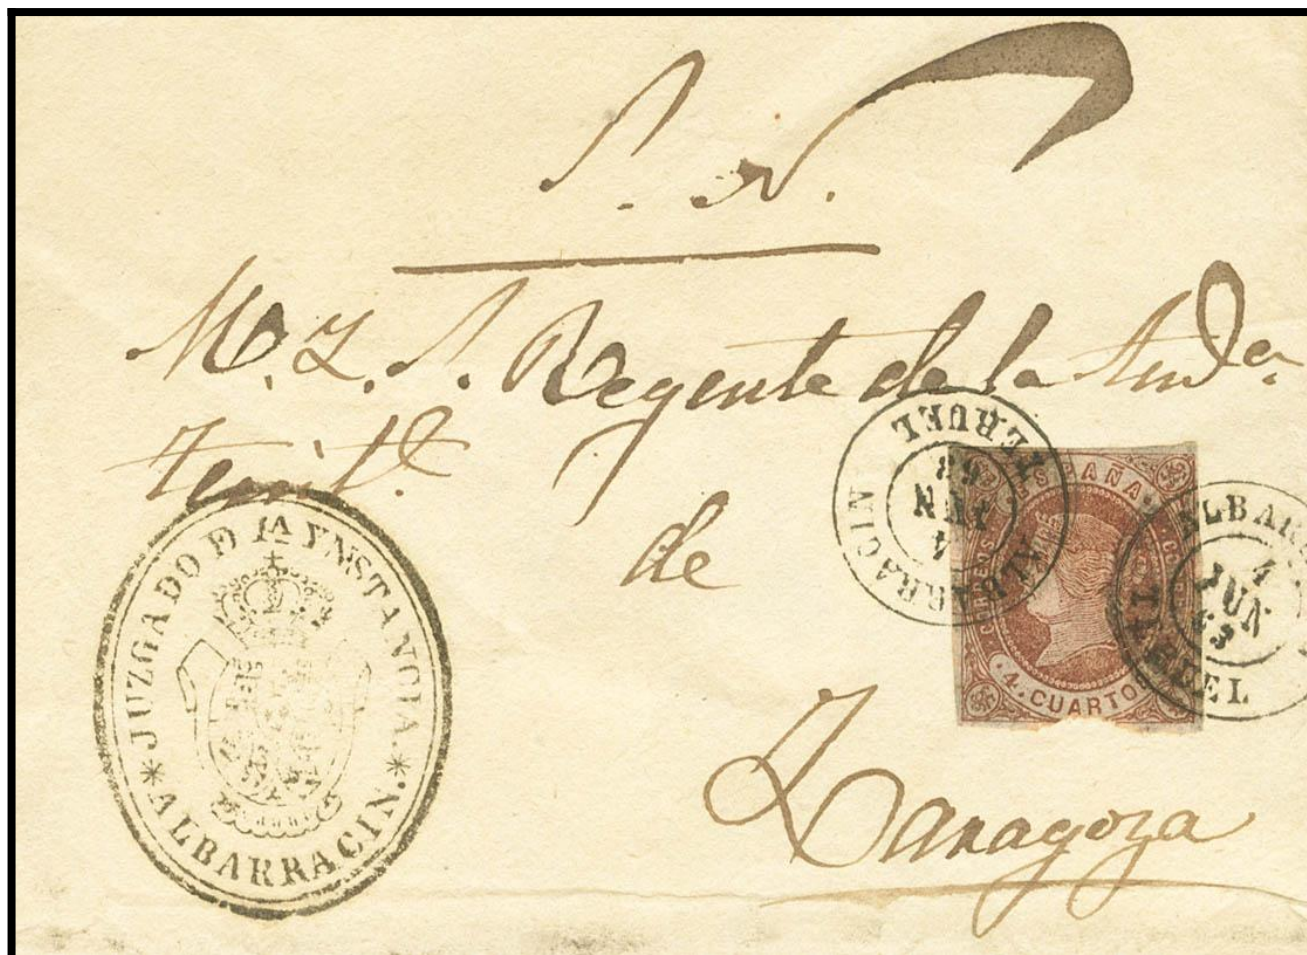 S. N.
M. I. S. Regente de la Aud.ª
Territ.l
de
Zaragoza
*JUZGADO D 1ª YNSTANCIA.*
ALBARRACIN.
ALBARRACIN
1
JUN
63
TERUEL
ESPAÑA
CORREOS
4. CUARTOS
ALBARR
1
JUN
63
TERUEL